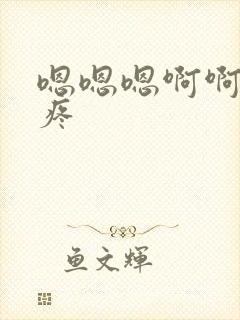 嗯嗯嗯啊啊
疼
鱼文辉